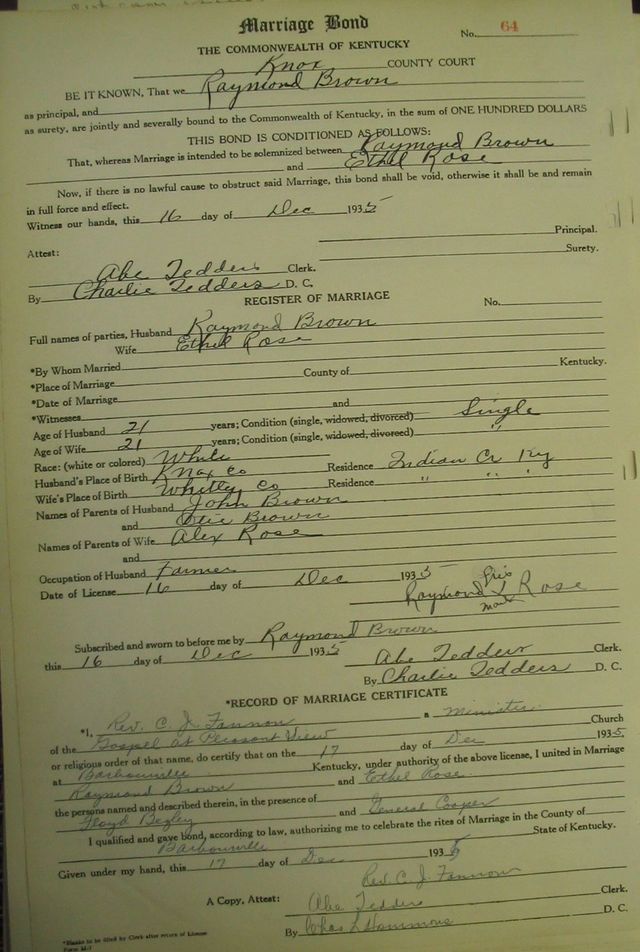 Marriage Bond
No. 64
THE COMMONWEALTH OF KENTUCKY
Knox COUNTY COURT
BE IT KNOWN, That we Raymond Brown
as principal, and
as surety, are jointly and severally bound to the Commonwealth of Kentucky, in the sum of ONE HUNDRED DOLLARS
THIS BOND IS CONDITIONED AS FOLLOWS:
That, whereas Marriage is intended to be solemnized between Raymond Brown
and Ethel Rose
Now, if there is no lawful cause to obstruct said Marriage, this bond shall be void, otherwise it shall be and remain
in full force and effect.
Witness our hands, this 16 day of Dec 1935
Principal.
Attest: Surety.
Abe Tedders Clerk.
By Charlie Tedders D. C.
REGISTER OF MARRIAGE No.
Full names of parties, Husband Raymond Brown
Wife Ethel Rose
*By Whom Married
*Place of Marriage County of Kentucky.
*Date of Marriage
*Witnesses and
Age of Husband 21 years; Condition (single, widowed, divorced) Single
Age of Wife 21 years; Condition (single, widowed, divorced) "
Race: (white or colored) White
Husband's Place of Birth Knox Co Residence Indian Cr Ky
Wife's Place of Birth Whitly Co Residence " " "
Names of Parents of Husband John Brown
and Otie Brown
Names of Parents of Wife Alex Rose
and
Occupation of Husband Farmer
Date of License 16 day of Dec 1935
his
Raymond X Rose
mark
Subscribed and sworn to before me by Raymond Brown
this 16 day of Dec 1935
Abe Tedders Clerk.
By Charlie Tedders D. C.
*RECORD OF MARRIAGE CERTIFICATE
*I, Rev. C. J. Fannon a Minister
of the Gospel at Pleasant View Church
or religious order of that name, do certify that on the 17 day of Dec 1935
at Barbourville Kentucky, under authority of the above license, I united in Marriage
Raymond Brown and Ethel Rose
the persons named and described therein, in the presence of
Floyd Begley and General Cooper
I qualified and gave bond, according to law, authorizing me to celebrate the rites of Marriage in the County of
Barbourville State of Kentucky.
Given under my hand, this 17 day of Dec 1935
Rev. C. J. Fannon
A Copy, Attest: Abe Tedders Clerk.
By Chas L Hammons D. C.
*Blanks to be filled by Clerk after return of License
Form M-7